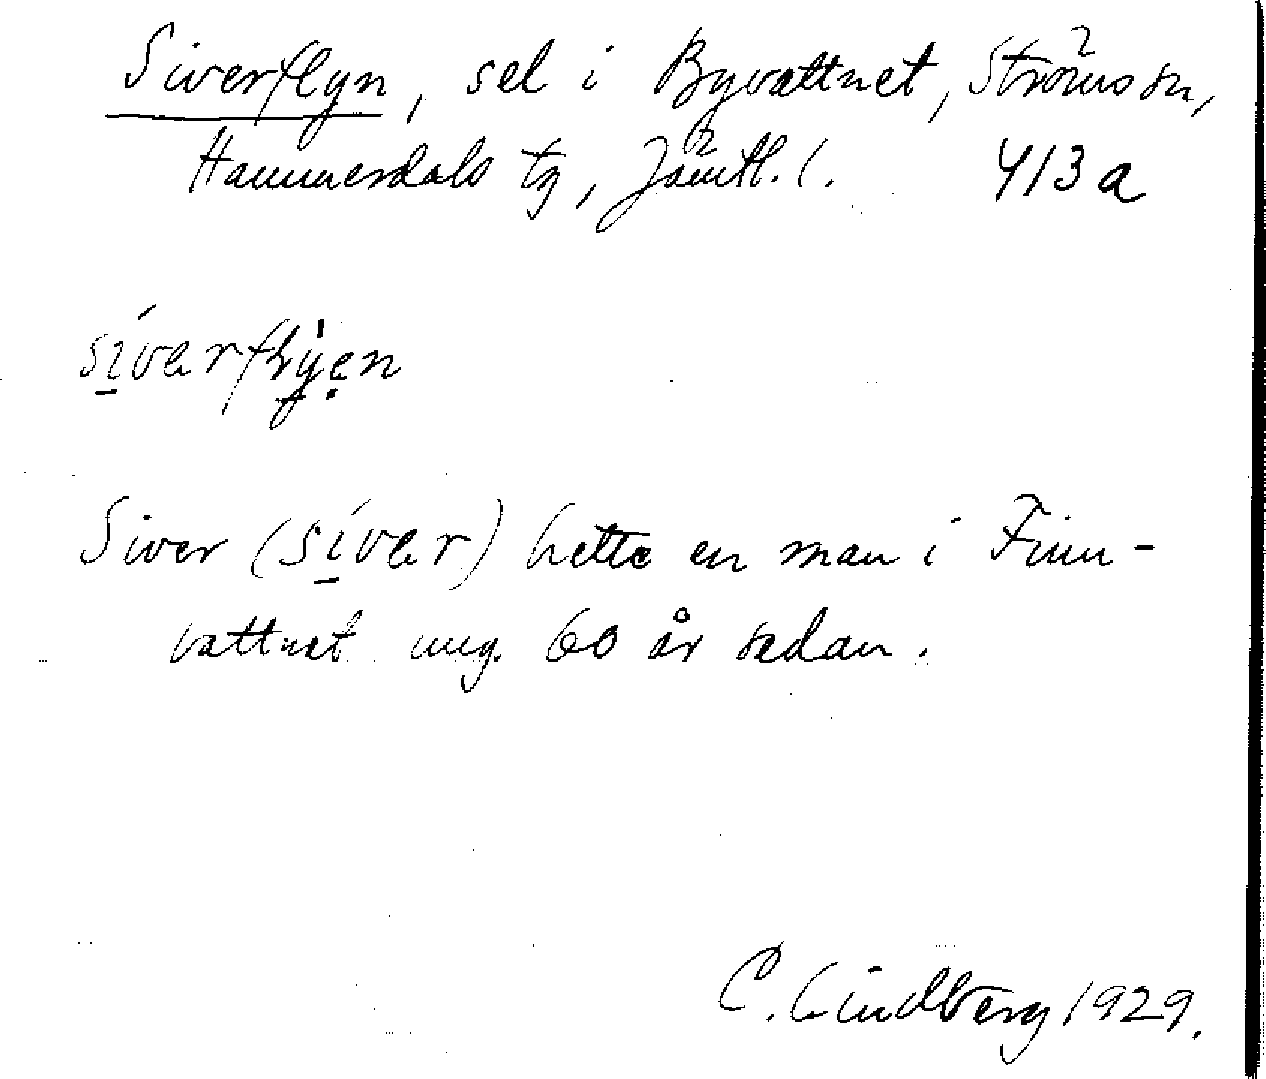 Siverflyn, sel i Byvattnet, Ströms sn,
Hammerdals tg, Jämtl. l. 413a
síverflyen
Siver (síver) hette en man i Finn-
vattnet ung. 60 år sedan.
C. Lindberg 1929.